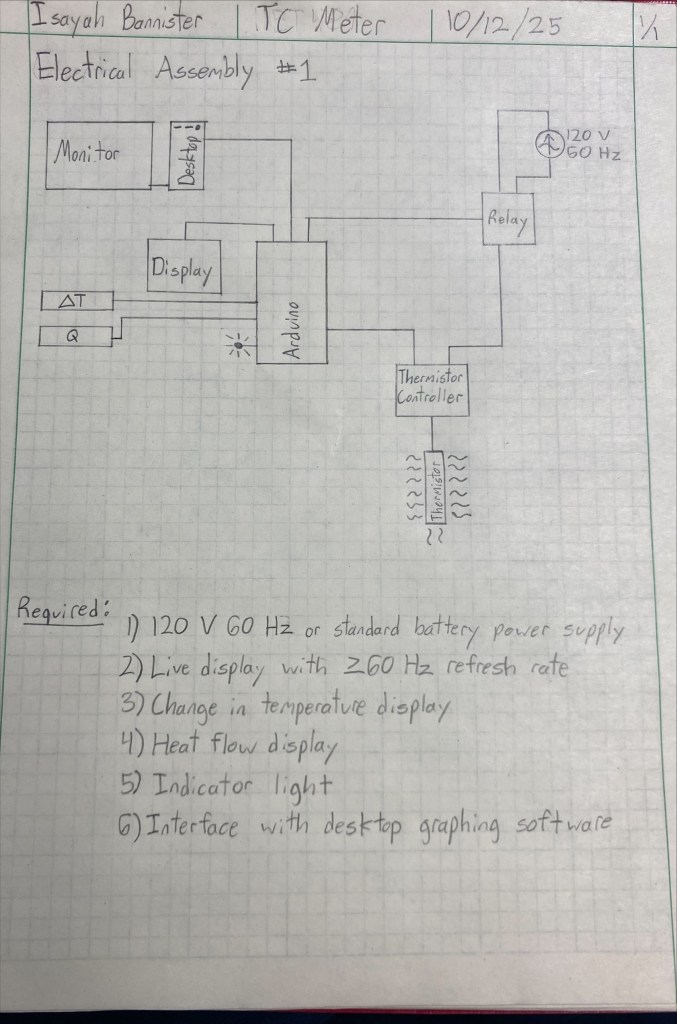 Isayah Bannister | TC Meter | 10/12/25 1/1
Electrical Assembly #1
Monitor
Desktop
120 V
60 Hz
Relay
Display
ΔT
Q
Arduino
Thermistor
Controller
Thermistor
Required:
1) 120 V 60 Hz or standard battery power supply
2) Live display with ≥60 Hz refresh rate
3) Change in temperature display
4) Heat flow display
5) Indicator light
6) Interface with desktop graphing software